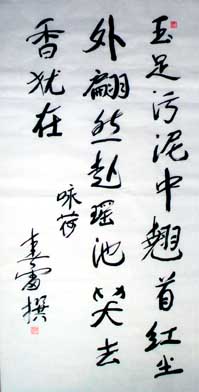 玉足污泥中翹首红尘
外翩然赴瑶池笑去
香犹在
咏荷
雷撰